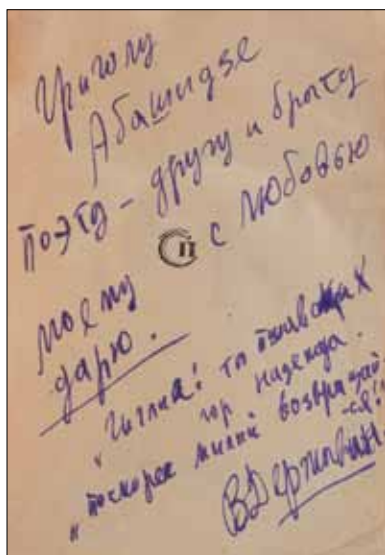 Григолу
Абашидзе
поэту – другу и брату
моему с любовью
дарю.
гор надежда.
„поскорее милый возвращай-
-ся!"
ВДержавин.